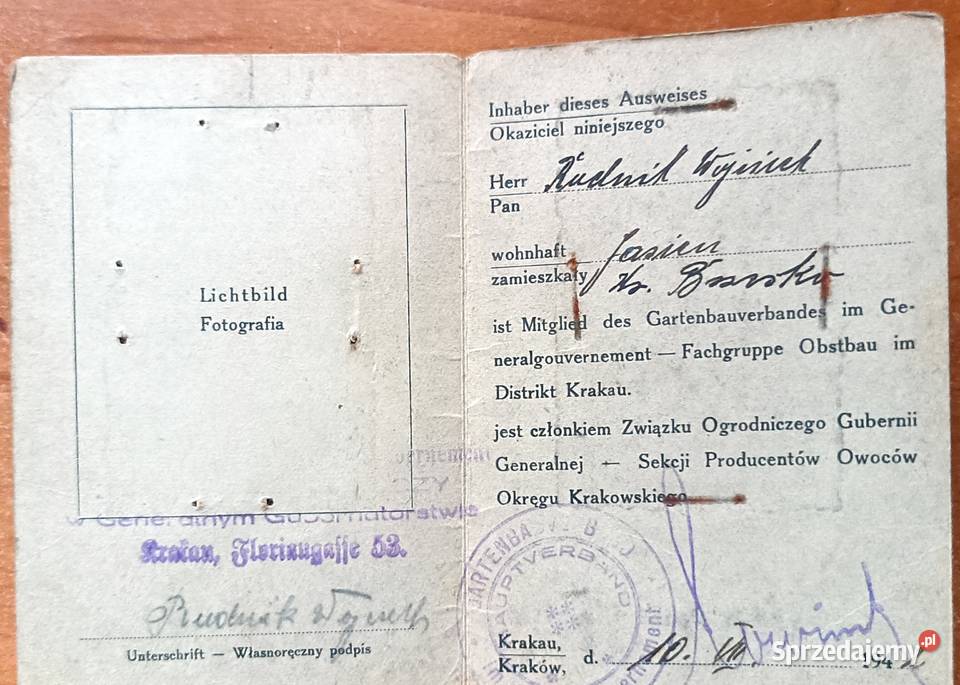 Lichtbild
Fotografia
w Generalnym Gubernatorstwie
Krakau, Floriangasse 53.
Rudnik
Unterschrift — Własnoręczny podpis
Inhaber dieses Ausweises
Okaziciel niniejszego
Herr Rudnik Wojciech
Pan
wohnhaft Jasień
zamieszkały Brzesko
ist Mitglied des Gartenbauverbandes im Ge-
neralgouvernement — Fachgruppe Obstbau im
Distrikt Krakau.
jest członkiem Związku Ogrodniczego Gubernii
Generalnej — Sekcji Producentów Owoców
Okręgu Krakowskiego
HAUPTVERBAND
Krakau,
Kraków, d. 10. VII. 194
Sprzedajemy.pl